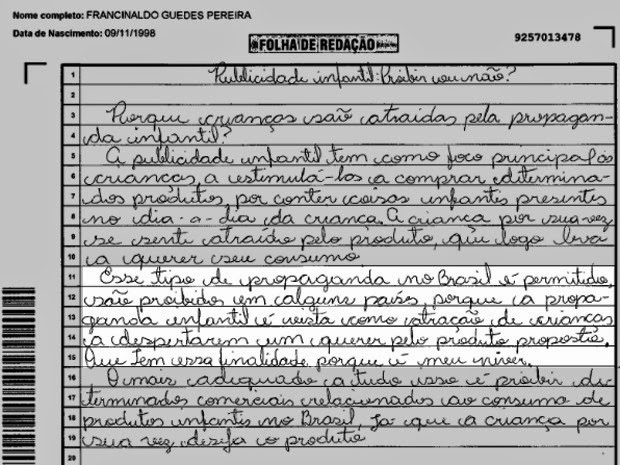 Nome completo: FRANCINALDO GUEDES PEREIRA
Data de Nascimento: 09/11/1998
FOLHA DE REDAÇÃO
9257013478
1 Publicidade infantil: Proibir ou não?
2
3 Porque crianças são atraidas pela propagan-
4 da infantil?
5 A publicidade infantil tem como foco principal as
6 crianças, a estimulá-las a comprar determina-
7 dos produtos, por conter coisas infantis presentes
8 no dia-a-dia da criança. A criança por sua vez
9 se sente atraído pelo produto, que logo leva
10 a querer seu consumo
11 Esse tipo de propaganda no Brasil é permitido,
12 são proibidos em alguns país, porque a propa-
13 ganda infantil é vista como atração, de crianças
14 a despertarem um querer pelo produto proposto.
15 Que tem essa finalidade porque é meu niver.
16 O mais adequado a tudo isso é proibir de-
17 terminados comerciais relacionados ao consumo de
18 produtos infantis no Brasil, ja que a criança por
19 sua vez, deseja o produto
20